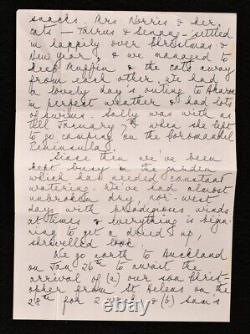 snacks. Mrs Norris & her
cats — & — settled
in happily over Christmas &
New Year & we managed to
keep Muffin & the cats away
from each other. We had a
lovely day's outing to
in perfect weather & had lots
of swims. Sally was with us
till January 7th when she left
to go camping on the Coromandel
Peninsula.
Since then we've been
kept busy in the garden
which has needed constant
watering. We've had almost
unbroken dry, nor-west
days with prodigious winds
at times & everything is begin-
ning to get a dried up
shrivelled look.
We go north to Auckland
on Jan 26th to await the
arrival of (a) our son Christ-
opher from St Helens on the
28th for 2 & (b) Sam's
© ebay